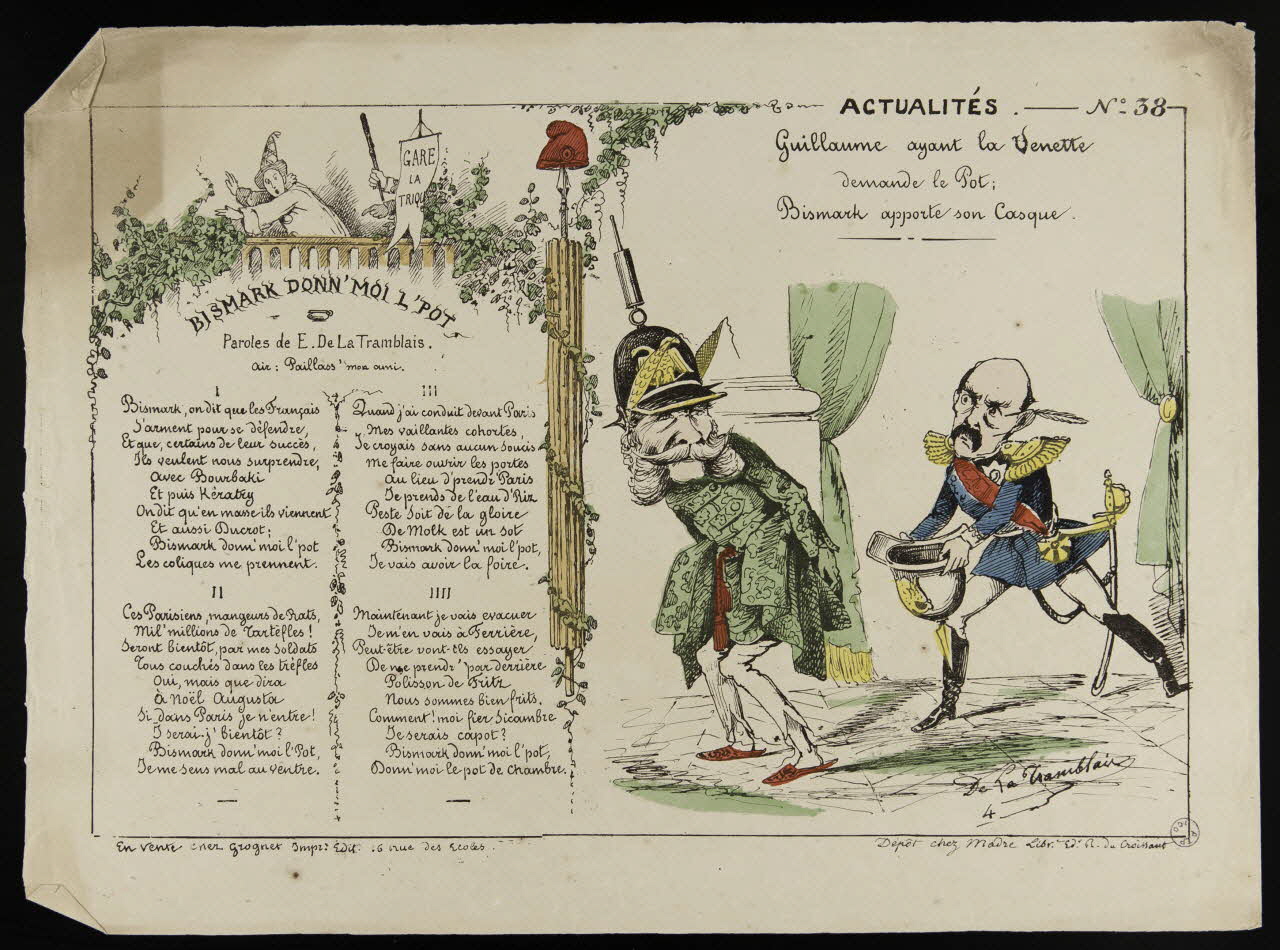 ACTUALITÉS. N° 38
Guillaume ayant la Venette
demande le Pot;
Bismark apporte son Casque.
GARE
LA
TRIQUE
BISMARK DONN'MOI L'POT
Paroles de E. De La Tramblais.
air: Paillass' mon ami.
I
Bismark, on dit que les Français
S'arment pour se défendre,
Et que, certains de leur succès,
Ils veulent nous surprendre;
avec Bourbaki
Et puis Kératry
On dit qu'en masse ils viennent
Et aussi Ducrot;
Bismark donn' moi l'pot
Les coliques me prennent.
II
Ces Parisiens, mangeurs de Rats,
Mil' millions de Tartèfles!
Seront bientôt, par mes soldats
Tous couchés dans les trèfles
Oui, mais que dira
à Noël Augusta
Si dans Paris je n'entre!
I serai-j' bientôt?
Bismark donn' moi l'Pot,
Je me sens mal au ventre.
III
Quand j'ai conduit devant Paris
Mes vaillantes cohortes,
Je croyais sans aucun soucis
Me faire ouvrir les portes
au lieu d'prendr' Paris
Je prends de l'eau d'Riz
Peste soit de la gloire
De Molk est un sot
Bismark donn' moi l'pot,
Je vais avoir la foire.
IIII
Maintenant je vais evacuer
Je m'en vais à Ferrière,
Peut-être vont-ils essayer
De me prendr' par derrière
Polisson de Fritz
Nous sommes bien frits.
Comment! moi fier Sicambre
Je serais capot?
Bismark donn' moi l'pot,
Donn' moi le pot de chambre.
De La Tramblais
4
En Vente chez Grognet Impr. Edit. 16 rue des Ecoles.
Dépôt chez Madre Libr. Ed. R. du Croissant